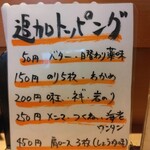 追加トッピング
50円 バター・日替わり薬味
150円 のり5枚・わかめ
200円 味玉・ネギ・岩のり
250円 メンマ・つくね・海老
ワンタン
450円 肩ロース3枚(しょうゆ味)